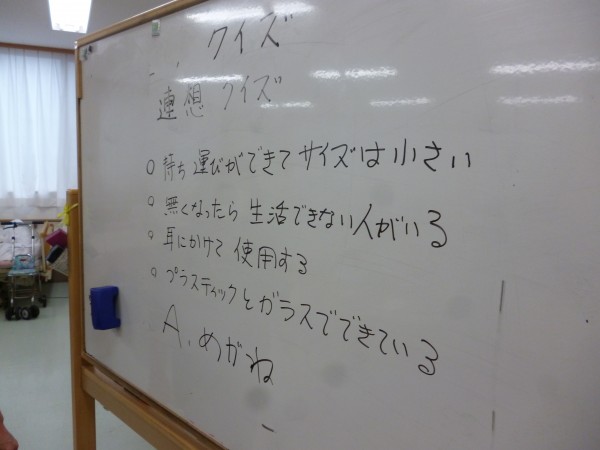 クイズ
連想クイズ
○持ち運びができてサイズは小さい
○無くなったら生活できない人がいる
○耳にかけて使用する
○プラスティックとガラスでできている
A、めがね